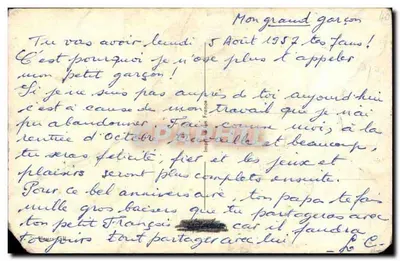 Mon grand garçon
Tu vas avoir lundi 5 Août 1957 tes 7 ans!
C'est pourquoi je n'ose plus t'appeler
mon petit garçon!
Si je ne suis pas auprès de toi aujourd'hui
c'est à cause de mon travail que je n'ai
pu abandonner. Fais comme moi, à la
rentrée d'Octobre travaille et beaucoup,
tu seras félicité, fier et les jeux et
plaisirs seront plus complets ensuite.
Pour ce bel anniversaire, ton papa te fais
mille gros baisers que tu partageras avec
ton petit François car il faudra
toujours tout partager avec lui!